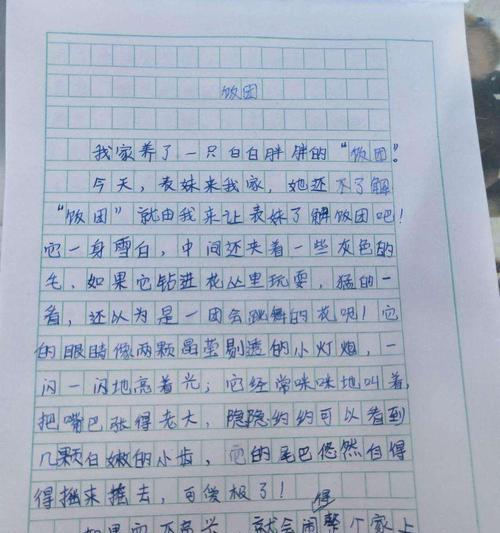 饭团
我家养了一只白白胖胖的“饭团”。
今天，表妹来我家，她还不了解
“饭团”就由我来让表妹了解饭团吧！
它一身雪白，中间还夹着一些灰色的
毛，如果它钻进花丛里玩耍，猛的一
看，还以为是一团会跳舞的花呢！它
的眼睛像两颗晶莹剔透的小灯炮，一
闪一闪地亮着光；它经常咪咪地叫着，
把嘴巴张得老大，隐隐约约可以看到
几颗白嫩的小齿，它的尾巴悠然自得
得摇来摇去，可爱极了！
得
不高兴，就会闹整个家上